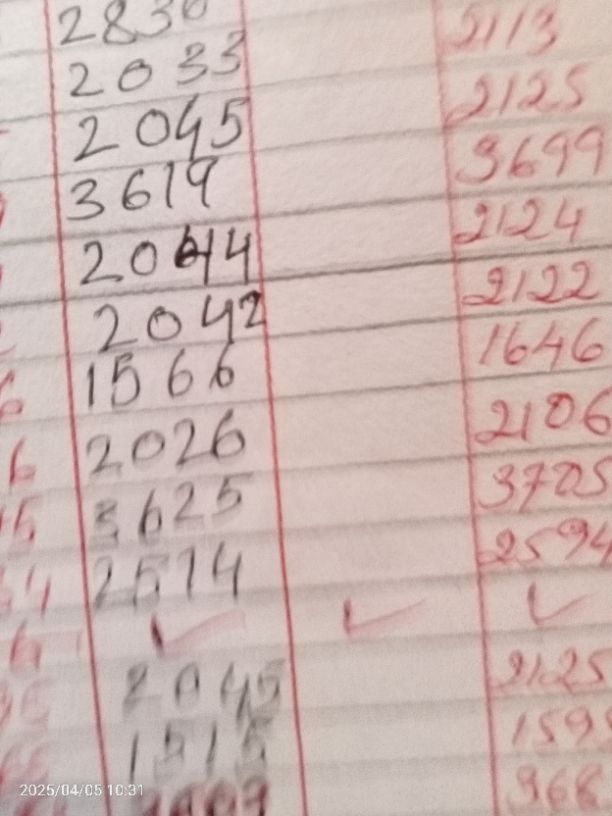 2830 2113
2033 2125
2045 3699
3619 2124
2044 2122
2042 1646
1566 2106
2026 3705
3625 2594
2514
2045 2125
1515 159
368
2025/04/05 10:31